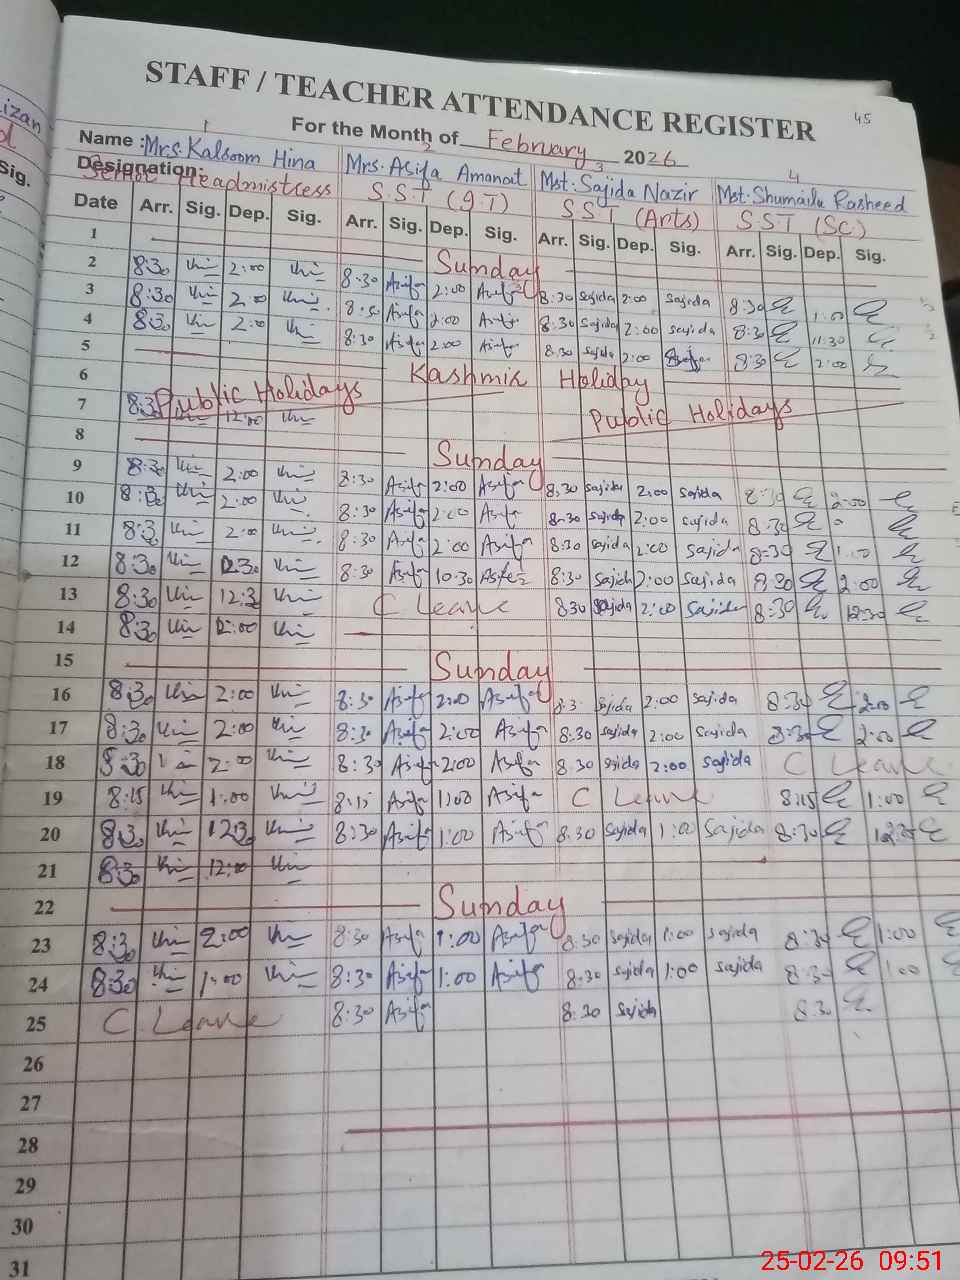 45
STAFF / TEACHER ATTENDANCE REGISTER
For the Month of February 2026
1 2 3 4
Name : Mrs. Kalsoom Hina Mrs. Asifa Amanat Mst. Sajida Nazir Mst. Shumaila Rasheed
Designation: Senior Headmistress S.S.T (g.T) S.S.T (Arts) S.S.T (Sc)
Date Arr. Sig. Dep. Sig. Arr. Sig. Dep. Sig. Arr. Sig. Dep. Sig. Arr. Sig. Dep. Sig.
1 Sunday
2 8:30 2:00 8:30 Asifa 2:00 Asifa 8:30 Sajida 2:00 Sajida 8:30 1:00
3 8:30 2:00 8:30 Asifa 2:00 Asifa 8:30 Sajida 2:00 Sajida 8:30 11:30
4 8:30 2:00 8:30 Asifa 2:00 Asifa 8:30 Sajida 2:00 8:30 2:00
5 Kashmir Holiday
6 Public Holidays Public Holidays
7 8:30 12:00
8 Sunday
9 8:30 2:00 8:30 Asifa 2:00 Asifa 8:30 Sajida 2:00 Sajida 8:30 2:00
10 8:30 2:00 8:30 Asifa 2:00 Asifa 8:30 Sajida 2:00 Sajida 8:30
11 8:30 2:00 8:30 Asifa 2:00 Asifa 8:30 Sajida 2:00 Sajida 8:30 1:00
12 8:30 8:30 Asifa 10:30 Asifa 8:30 Sajida 2:00 Sajida 8:30 2:00
13 8:30 12:30 C Leave 8:30 Sajida 2:00 Sajida 8:30 12:30
14 8:30 12:00
15 Sunday
16 8:30 2:00 8:30 Asifa 2:00 Asifa 8:30 Sajida 2:00 Sajida 8:30 2:00
17 8:30 2:00 8:30 Asifa 2:00 Asifa 8:30 Sajida 2:00 Sajida 8:30 2:00
18 8:30 2:00 8:30 Asifa 2:00 Asifa 8:30 Sajida 2:00 Sajida C Leave
19 8:15 1:00 8:15 Asifa 1:00 Asifa C Leave 8:15 1:00
20 8:30 12:30 8:30 Asifa 1:00 Asifa 8:30 Sajida 1:00 Sajida 8:30 12:30
21 8:30 12:00
22 Sunday
23 8:30 2:00 8:30 Asifa 1:00 Asifa 8:30 Sajida 1:00 Sajida 8:30 1:00
24 8:30 1:00 8:30 Asifa 1:00 Asifa 8:30 Sajida 1:00 Sajida 8:30 1:00
25 C Leave 8:30 Asifa 8:30 Sajida 8:30
26
27
28
29
30
31
25-02-26 09:51